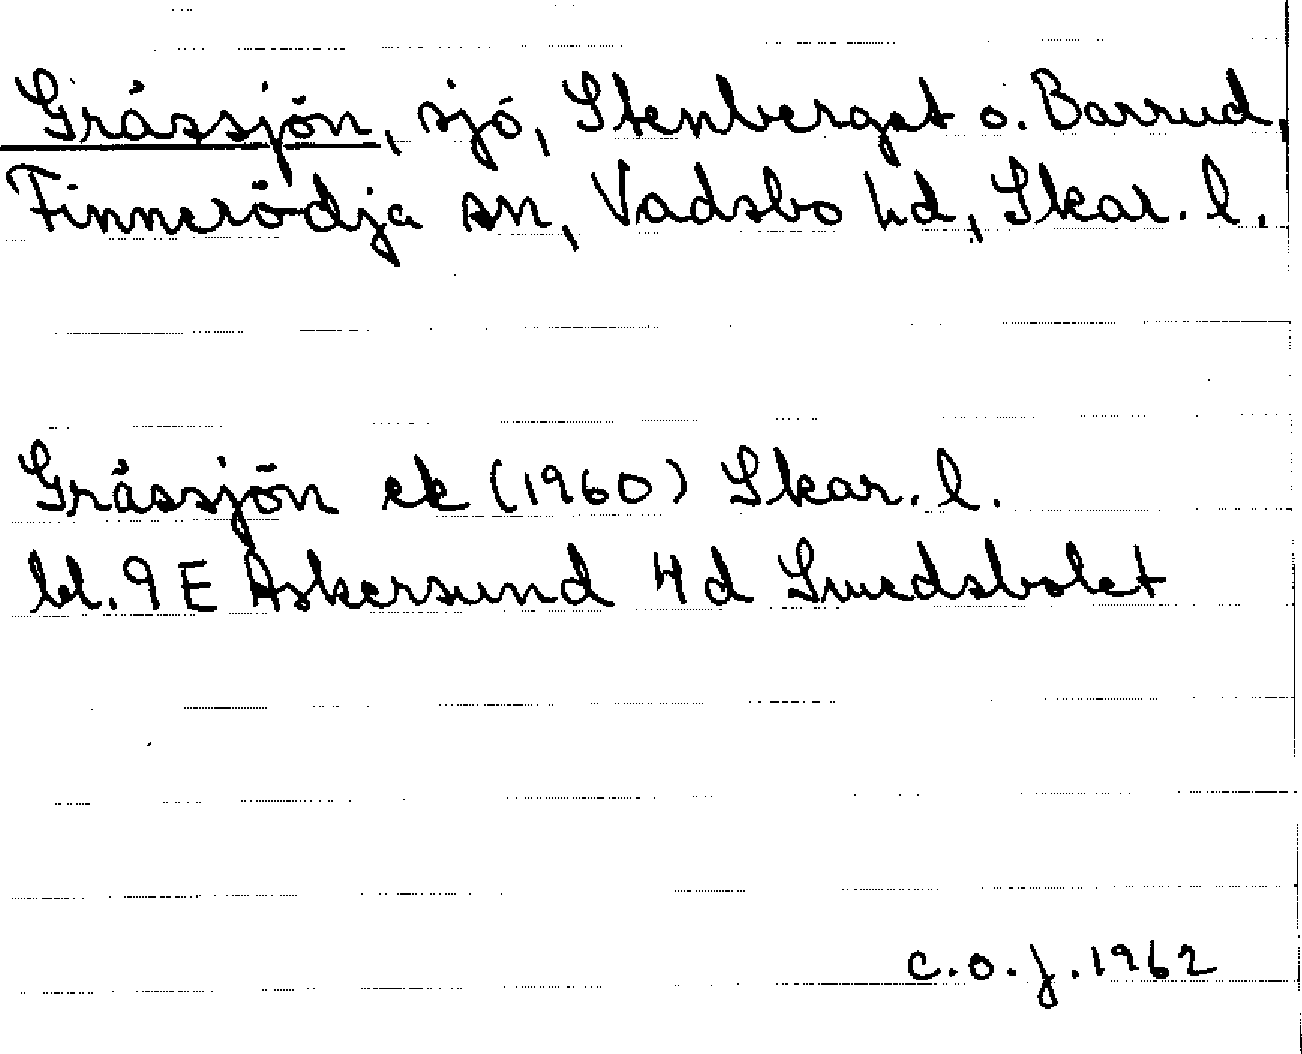 Gråssjön, sjö, Stenberget o. Barrud,
Finnerödja sn, Vadsbo hd, Skar. l.
Gråssjön ek (1960) Skar. l.
bl. 9E Askersund 4d Svedsbolet
C.O.J. 1962